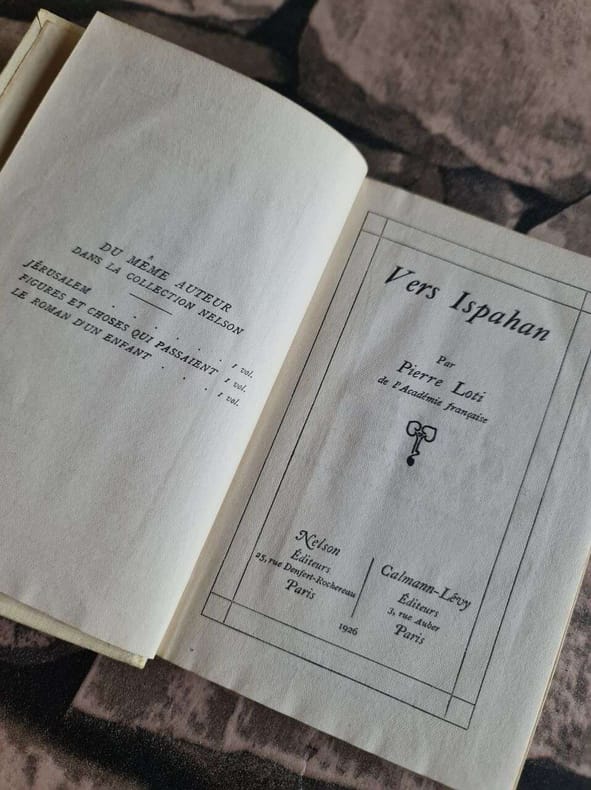 DU MÊME AUTEUR
DANS LA COLLECTION NELSON
JÉRUSALEM . . . . . . 1 vol.
FIGURES ET CHOSES QUI PASSAIENT 1 vol.
LE ROMAN D'UN ENFANT . . . 1 vol.
Vers Ispahan
Par
Pierre Loti
de l'Académie française
Nelson
Éditeurs
25, rue Denfert-Rochereau
Paris
Calmann-Lévy
Éditeurs
3, rue Auber
Paris
1926